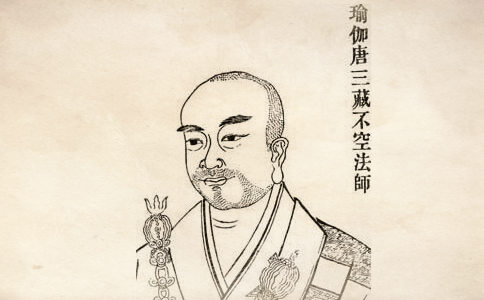 瑜伽唐三藏不空法師